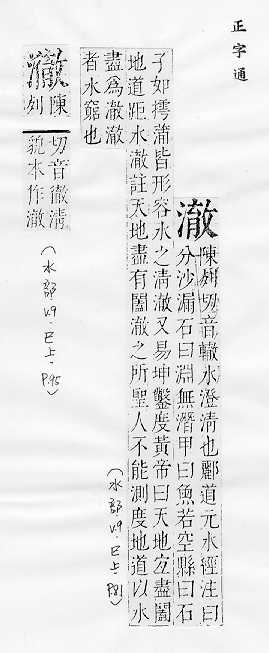 正字通
澈
陳列切音轍水澄清也酈道元水經注曰
分沙漏石曰淵無潛甲曰魚若空縣曰石
子如摴蒲皆形容水之清澈又易坤鑿度黃帝曰天地宜盡闔
地道距水澈註天地盡有闔澈之所聖人不能測度地道以水
盡為澈澈
者水窮也
(水部 V.9.巳上.P.81)
陳列
切音徹清
貌本作澈
(水部 V.9.巳上.P.95)